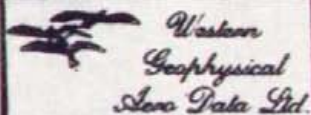 Western
Geophysical
Aero Data Ltd.